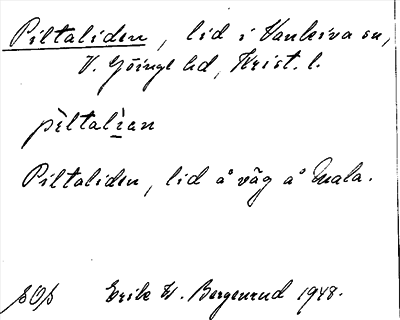 Piltaliden, lid i Vankiva sn,
V. Göinge hd, Krist. l.
pìltalìan
Piltaliden, lid å väg å Mala.
SOS Erik W. Bergenrud 1948.